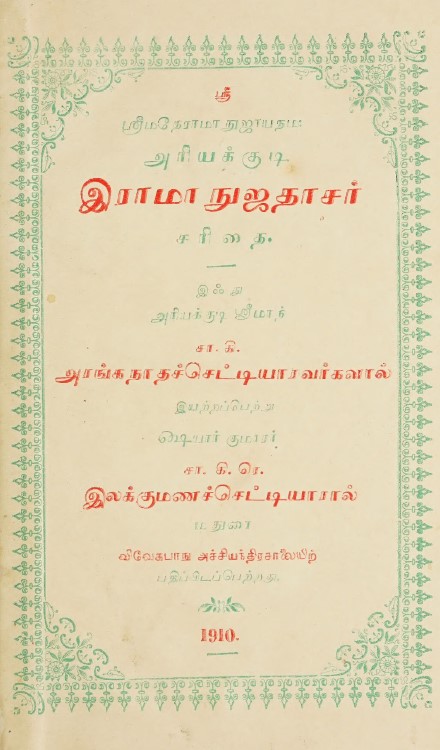 ஸ்ரீ
ஸ்ரீமதேராமாநுஜாயநம:
அரியக்குடி
இராமாநுஜதாசர்
சரிதை.
இஃது
அரியக்குடி ஸ்ரீமாந்
சா. கி.
அரங்கநாதச்செட்டியாரவர்களால்
இயற்றப்பெற்று
ஷெயார் குமாரர்
சா. கி. ரெ.
இலக்குமணச்செட்டியாரால்
மதுரை
விவேகபாநு அச்சியந்திரசாலையிற்
பதிப்பிடப்பெற்றது.
1910.